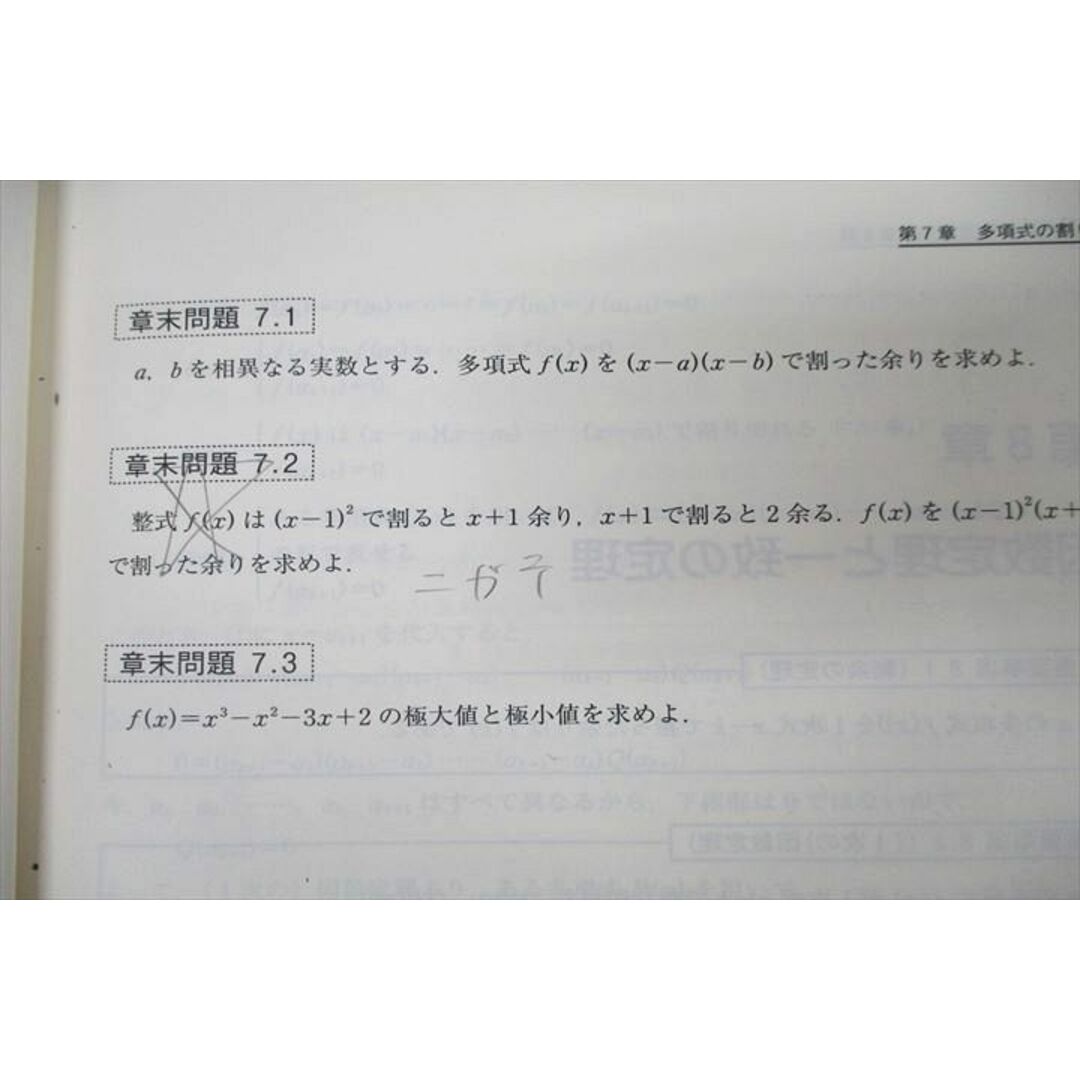 第7章 多項式の割
章末問題 7.1
a, bを相異なる実数とする. 多項式 f(x) を (x−a)(x−b) で割った余りを求めよ.
章末問題 7.2
整式 f(x) は (x−1)² で割ると x+1 余り, x+1 で割ると 2 余る. f(x) を (x−1)²(x+
で割った余りを求めよ.
章末問題 7.3
f(x)=x³−x²−3x+2 の極大値と極小値を求めよ.